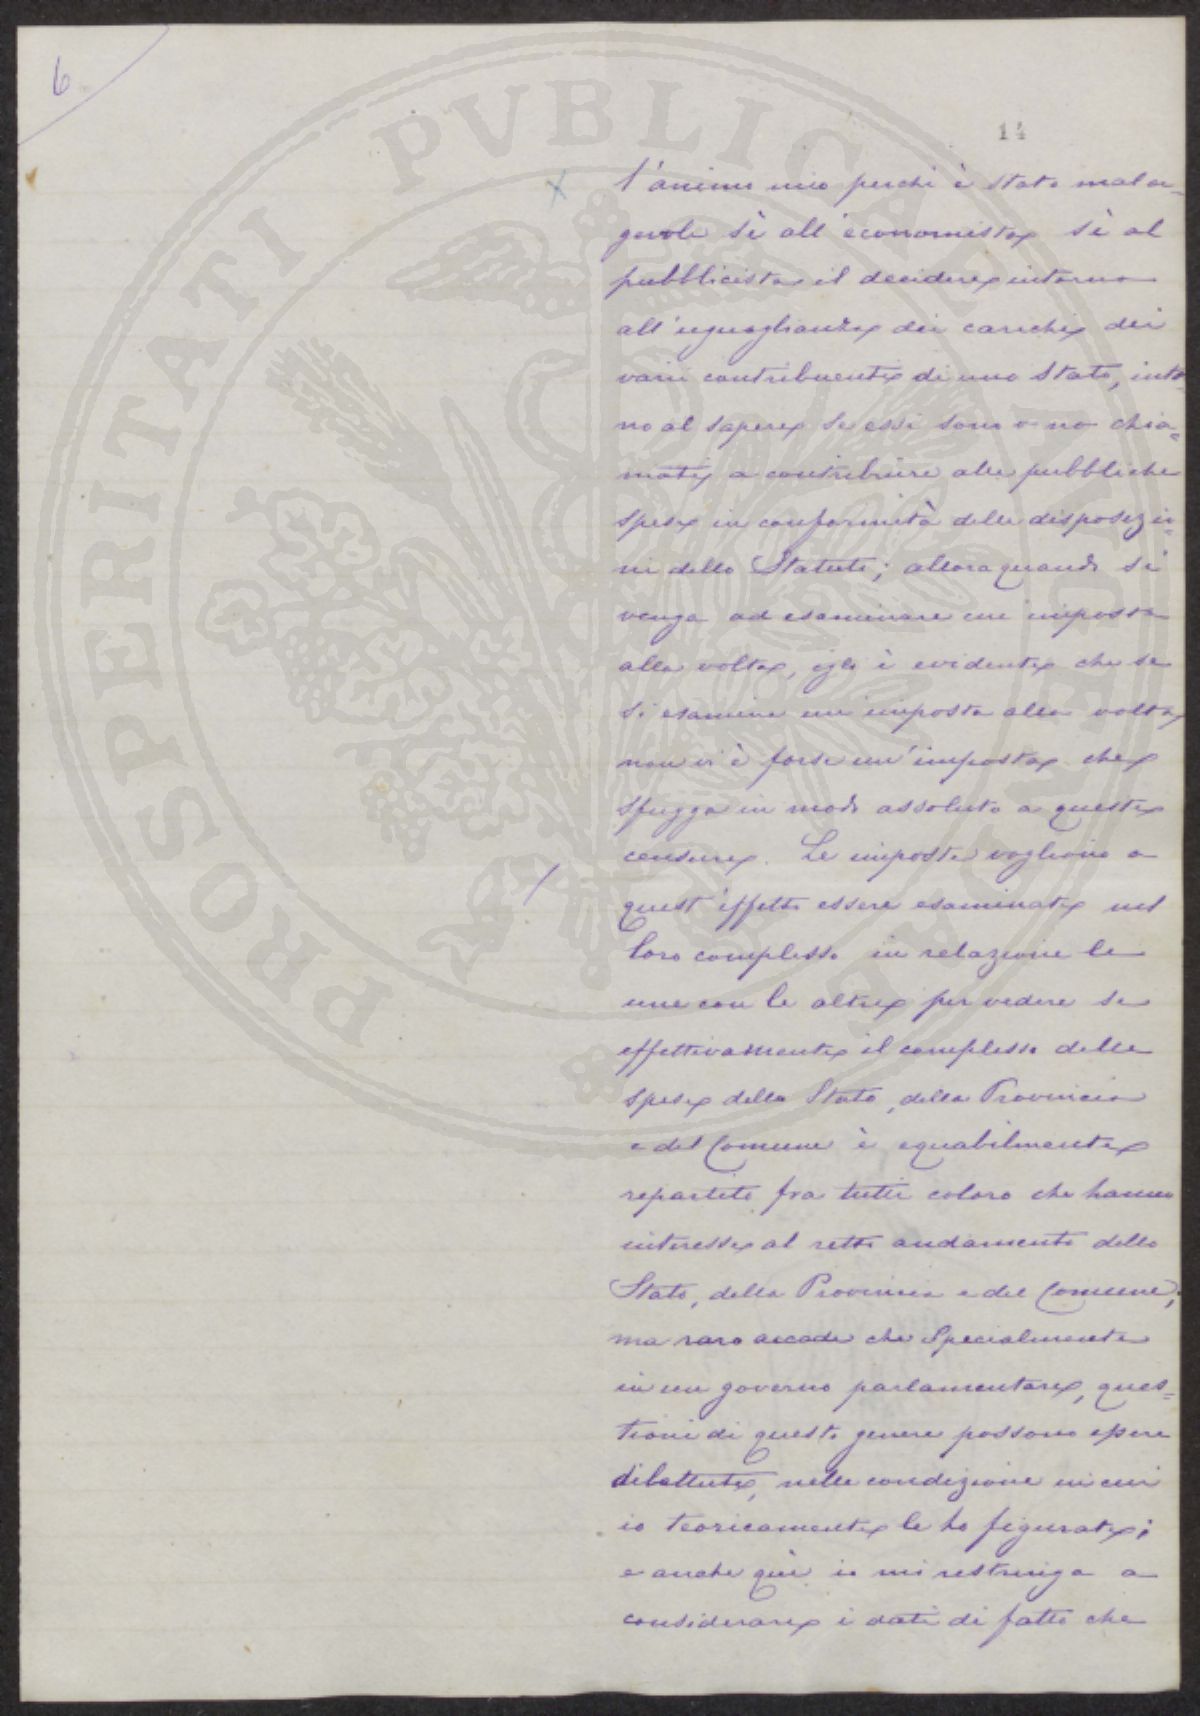 6
14
l'animo mio perchè è stato malæ=
gevole sì all'economista sì al
pubblicista il decidere intorno
all'uguaglianza dei carichi dei
varii contribuenti di uno Stato, intor=
no al sapere se essi sono o no chia=
mati a contribuire alle pubbliche
spese in conformità delle disposizio=
ni dello Statuto; allora quando si
venga ad esaminare un imposta
alla volta, egli è evidente che se
si esamina un imposta alla volta,
non vi è forse un'imposta che
sfugga in modo assoluto a queste
censure. Le imposte vogliono a
quest'effetto essere esaminate nel
loro complesso in relazione le
une con le altre per vedere se
effettivamente il complesso delle
spese dello Stato, della Provincia
e del Comune è equabilmente
repartito fra tutti coloro che hanno
interesse al retto andamento dello
Stato, della Provincia e del Comune;
ma raro accade che specialmente
in un governo parlamentare, ques=
tioni di questo genere possono essere
dibattute, nelle condizione in cui
io teoricamente le ho figurate;
e anche quì io mi restringo a
considerare i dati di fatto che
PROSPERITATI PVBLICAE